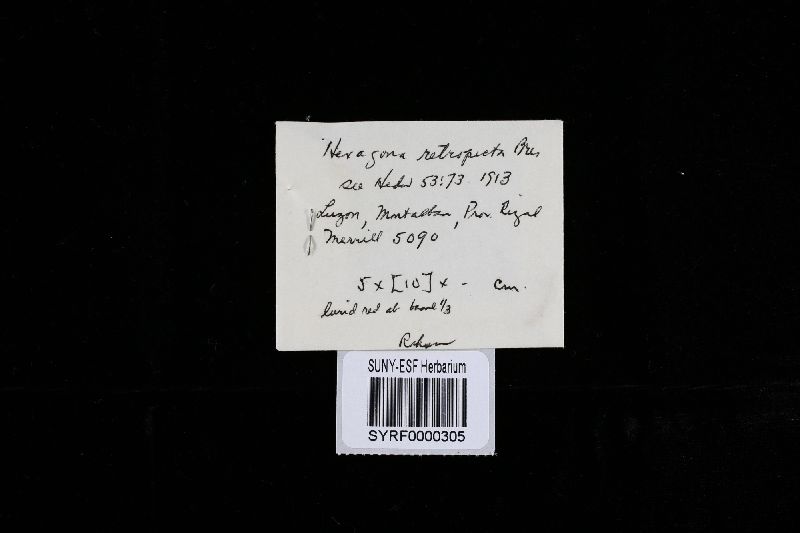 Hexagona retropicta Bres
see Hedw 53:73 1913
Luzon, Montalban, Prov. Rizal
Merrill 5090
5 x [10] x - cm.
lurid red at basal 1/3
SUNY-ESF Herbarium
SYRF0000305